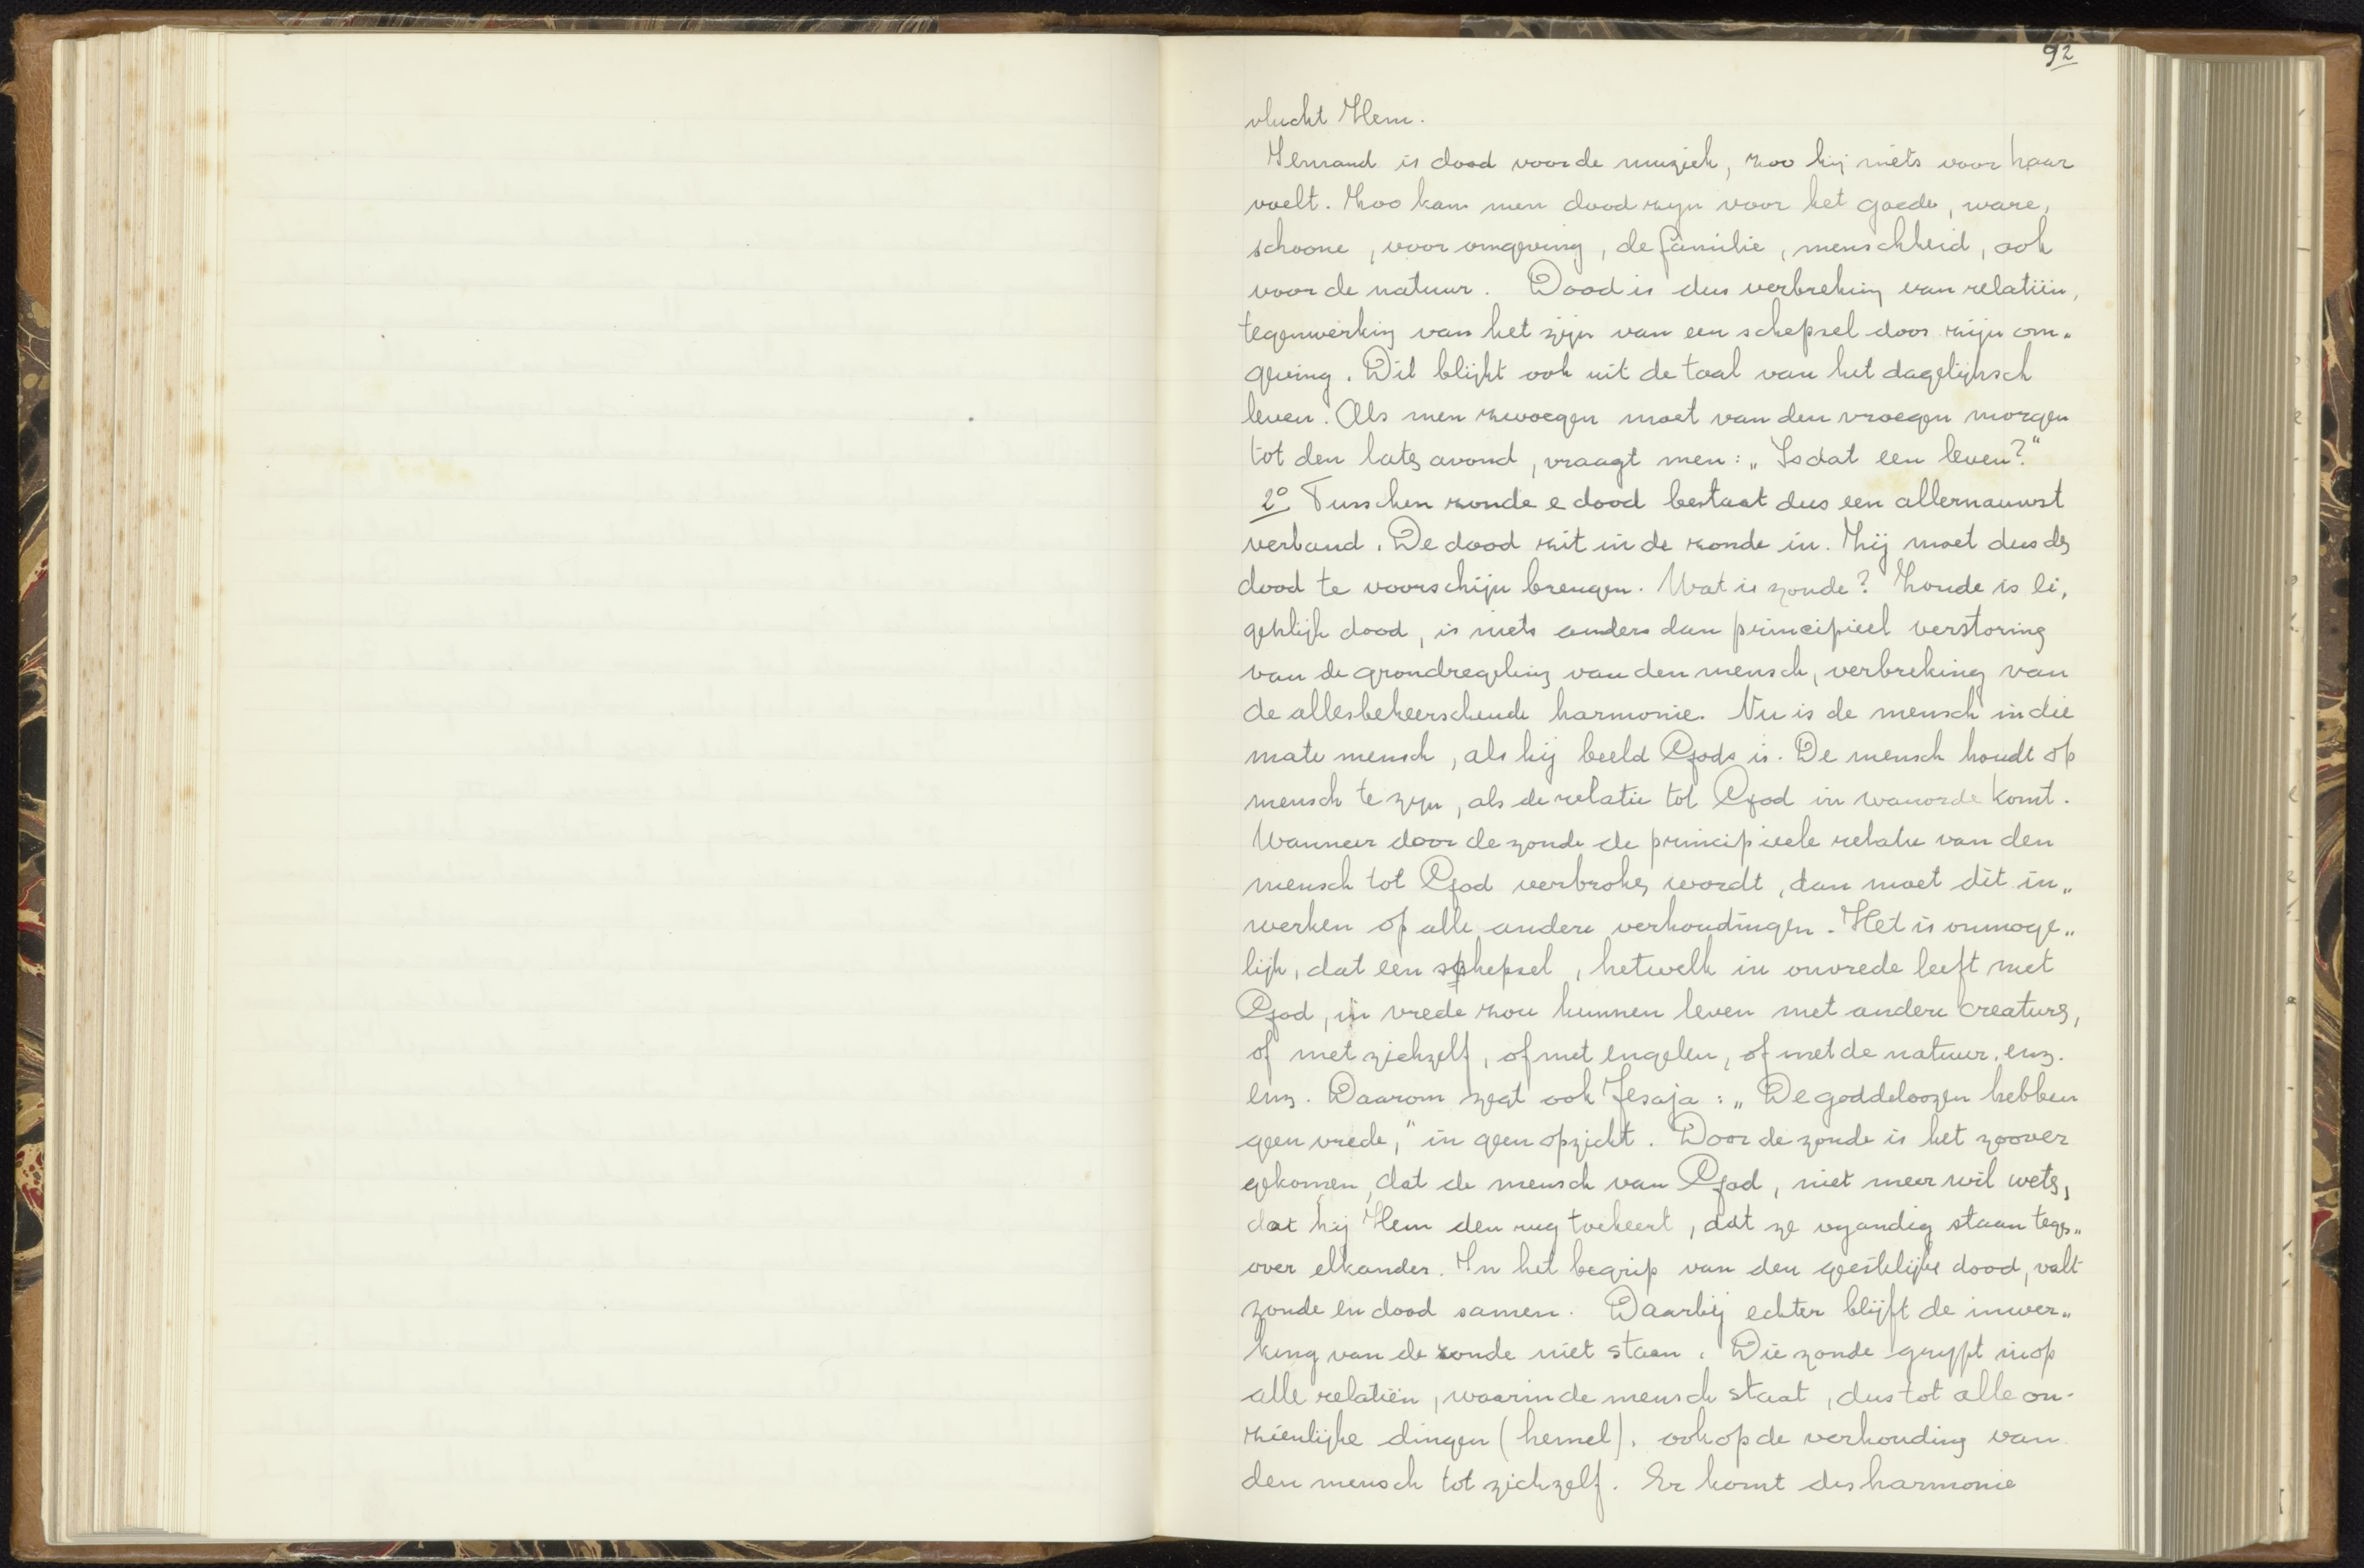 92
vlucht Hem.
Iemand is dood voor de muziek, zoo hij niets voor haar
voelt. Zoo kan men dood zijn voor het goede, ware,
schoone, voor omgeving, de familie, menschheid, ook
voor de natuur. Dood is dus verbreking van relatiën,
tegenwerking van het zijn van een schepsel door zijn om„
geving. Dit blijkt ook uit de taal van het dagelijksch
leven. Als men zwoegen moet van den vroegen morgen
tot den laten avond, vraagt men: „Is dat een leven?"
2º Tusschen zonde e dood bestaat dus een allernauwst
verband. De dood zit in de zonde in. Zij moet dus den
dood te voorschijn brengen. Wat is zonde? Zonde is ei,
genlijk dood, is niets anders dan principieel verstoring
van de grondregeling van den mensch, verbreking van
de allesbeheerschende harmonie. Nu is de mensch in die
mate mensch, als hij beeld Gods is. De mensch houdt op
mensch te zijn, als de relatie tot God in wanorde komt.
Wanneer door de zonde de principieele relatie van den
mensch tot God verbroken wordt, dan moet dit in„
werken op alle andere verhoudingen. Het is onmoge„
lijk, dat een schepsel, hetwelk in onvrede leeft met
God, in vrede zou kunnen leven met andere creaturen,
of met zichzelf, of met engelen, of met de natuur, enz.
enz. Daarom zegt ook Jesaja: „De goddeloozen hebben
geen vrede," in geen opzicht. Door de zonde is het zoover
gekomen, dat de mensch van God, niet meer wil weten,
dat hij Hem den rug toekeert, dat ze vyandig staan tegen„
over elkander. In het begrip van den geestelijke dood, valt
zonde en dood samen. Daarbij echter blijft de inwer„
king van de zonde niet staan. Die zonde grypt in op
alle relatiën, waarin de mensch staat, dus tot alle on-
zienlijke dingen (hemel), ook op de verhouding van
den mensch tot zichzelf. Er komt disharmonie